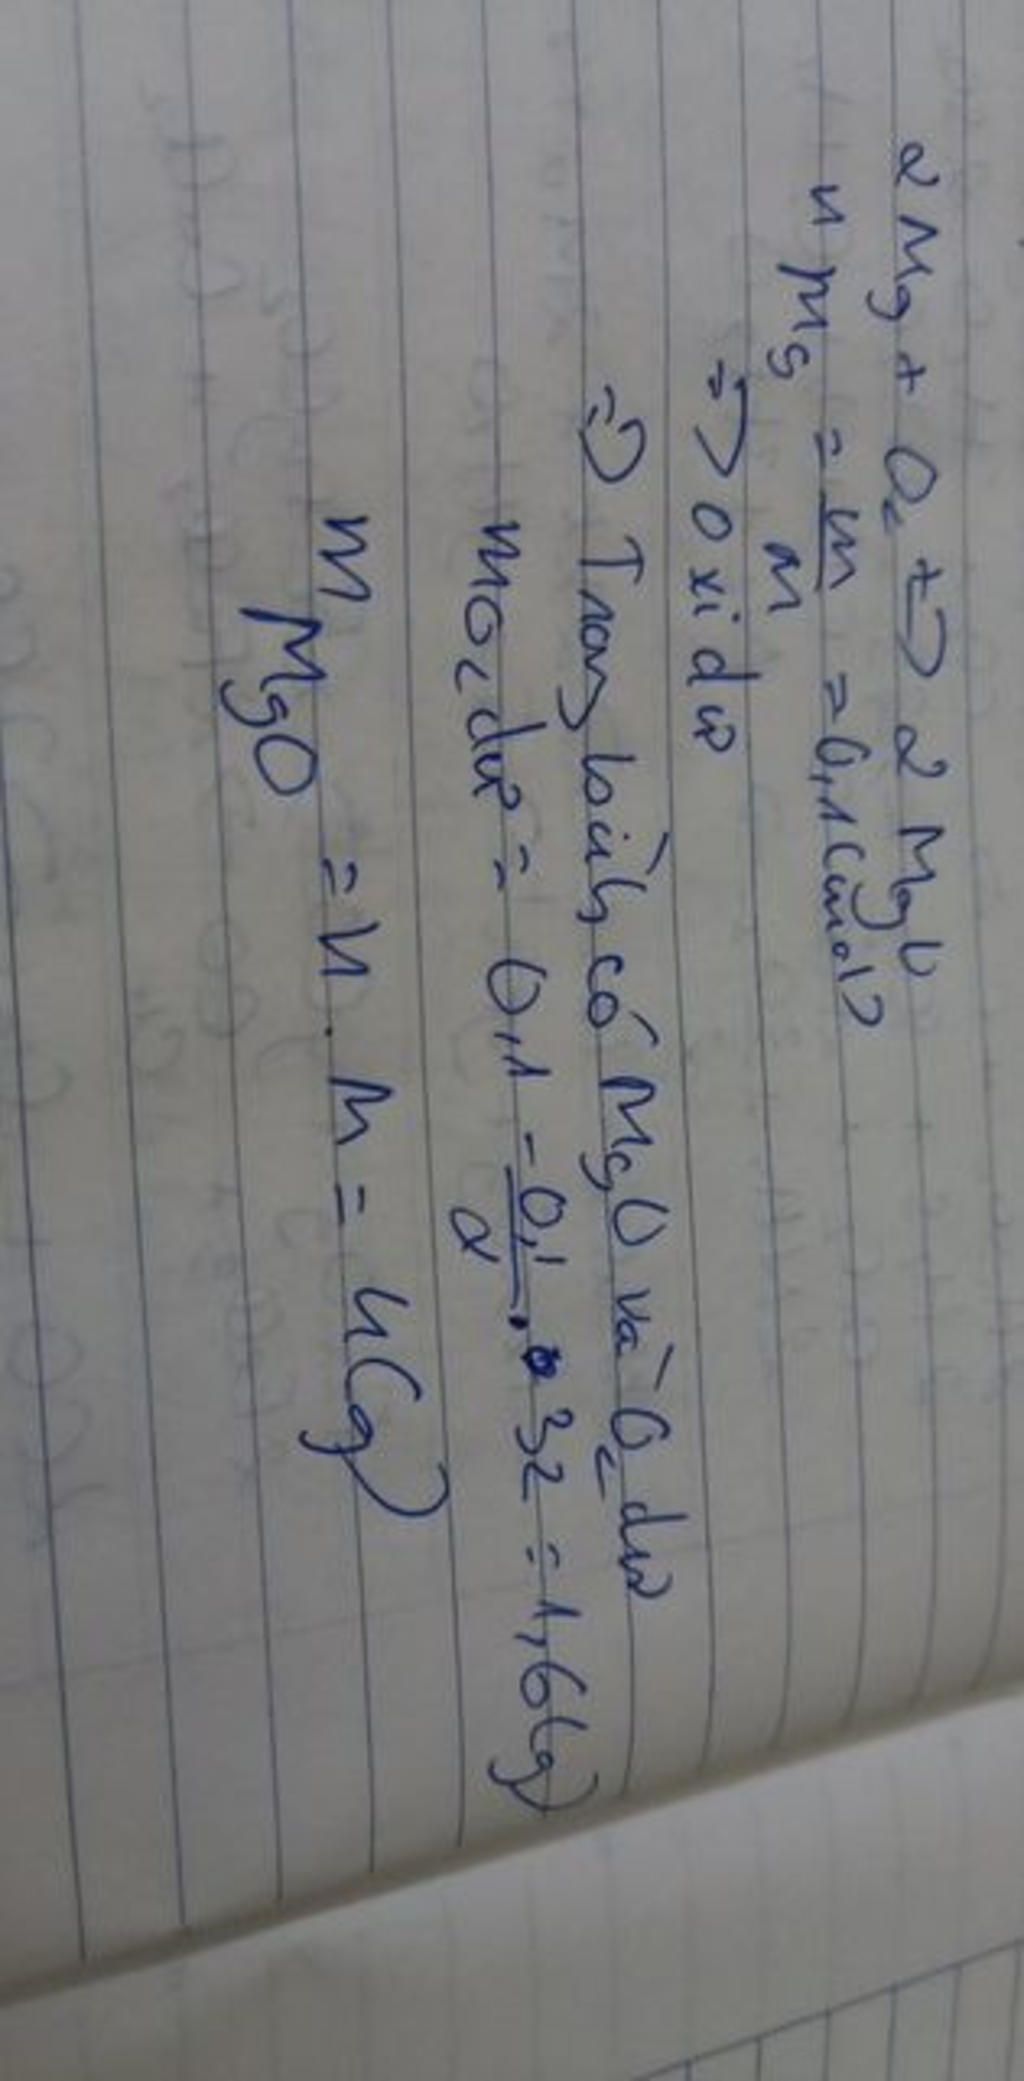 2Mg + O₂ t→ 2MgO
nMg = m/M = 0,1 (mol)
=> oxi dư
=> Trong bình có MgO và O₂ dư
mO₂ dư = 0,1 - 0,1/2 . 32 = 1,6 (g)
mMgO = n . M = 4 (g)